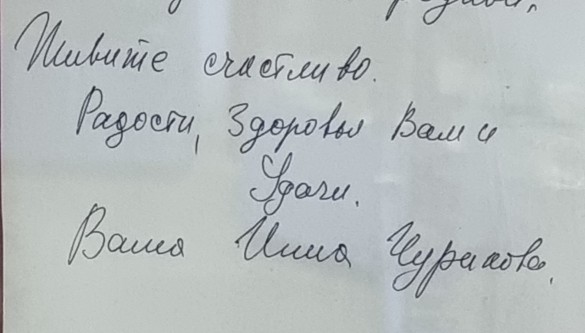 Живите счастливо.
Радости, Здоровья Вам и
Удачи.
Ваша Инна Чурикова.